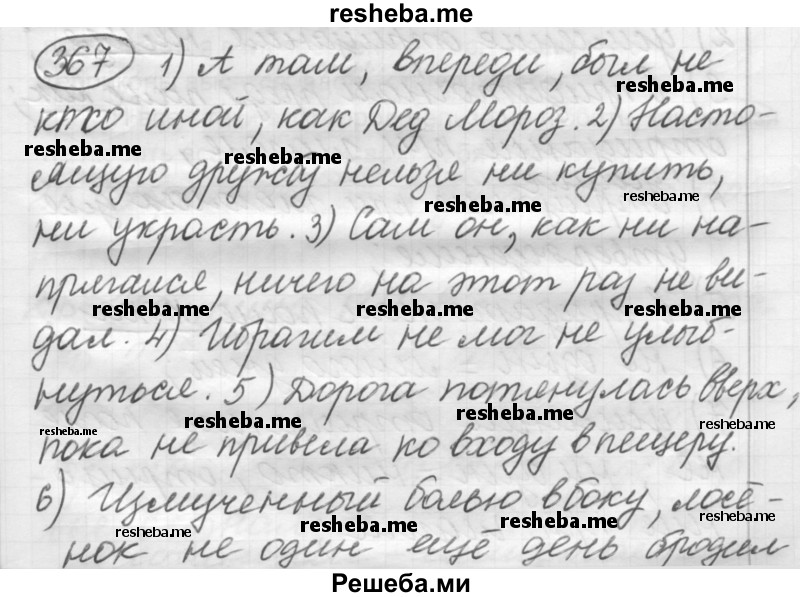 resheba.me
367 1) А там, впереди, был не
resheba.me
кто иной, как Дед Мороз. 2) Насто-
resheba.me resheba.me
ящую дружбу нельзя ни купить,
resheba.me resheba.me
ни украсть. 3) Сам он, как ни на-
прягался, ничего на этот раз не ви-
resheba.me resheba.me resheba.me
дал. 4) Ибрагим не мог не улыб-
нуться. 5) Дорога потянулась вверх,
resheba.me resheba.me resheba.me resheba.me
пока не привела ко входу в пещеру.
6) Измученный болью в боку, лосё-
resheba.me resheba.me resheba.me resheba.me
нок не один ещё день бродил
Решеба.ми